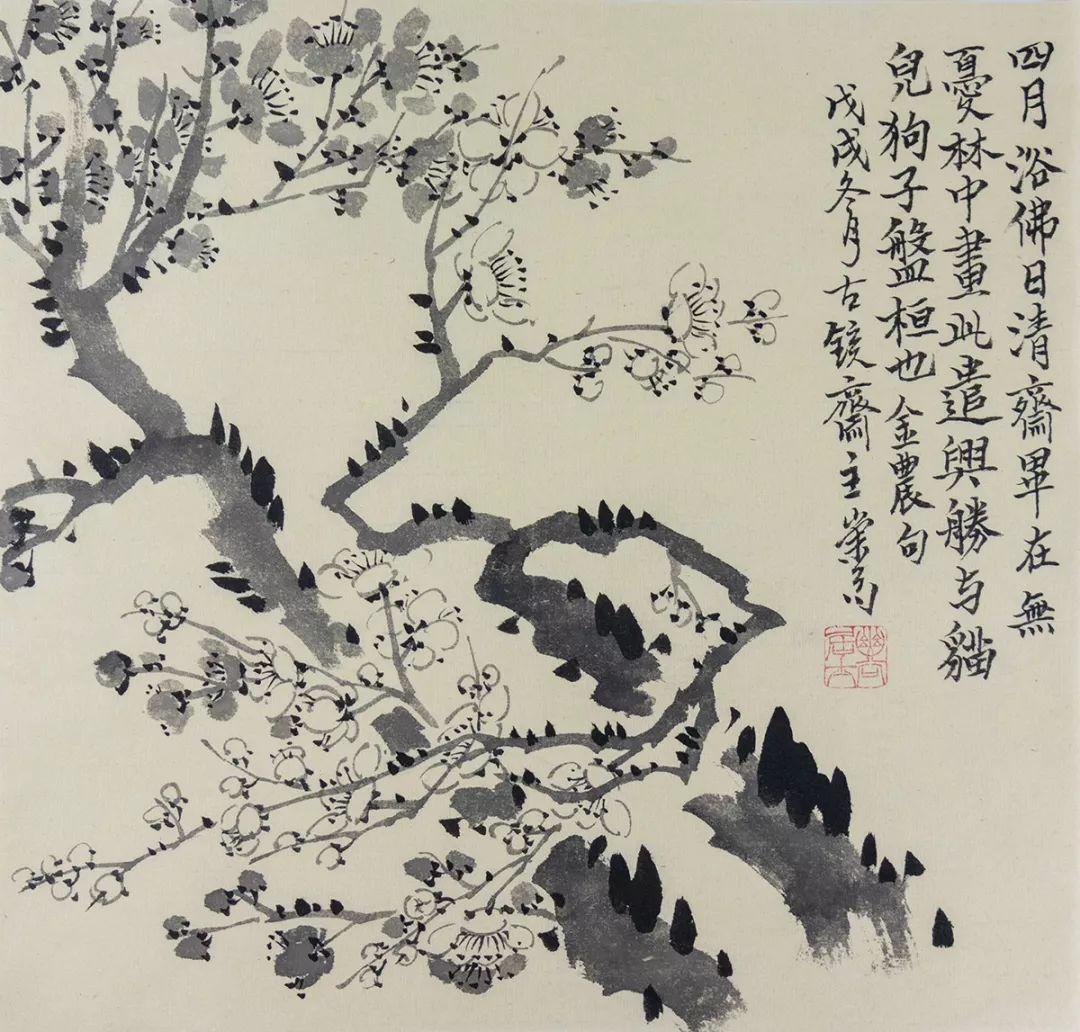 四月浴佛日清齋畢在無
憂林中畫此遣興勝与貓
兒狗子盤桓也 金農句
戊戌冬月古鏡齋主崇高